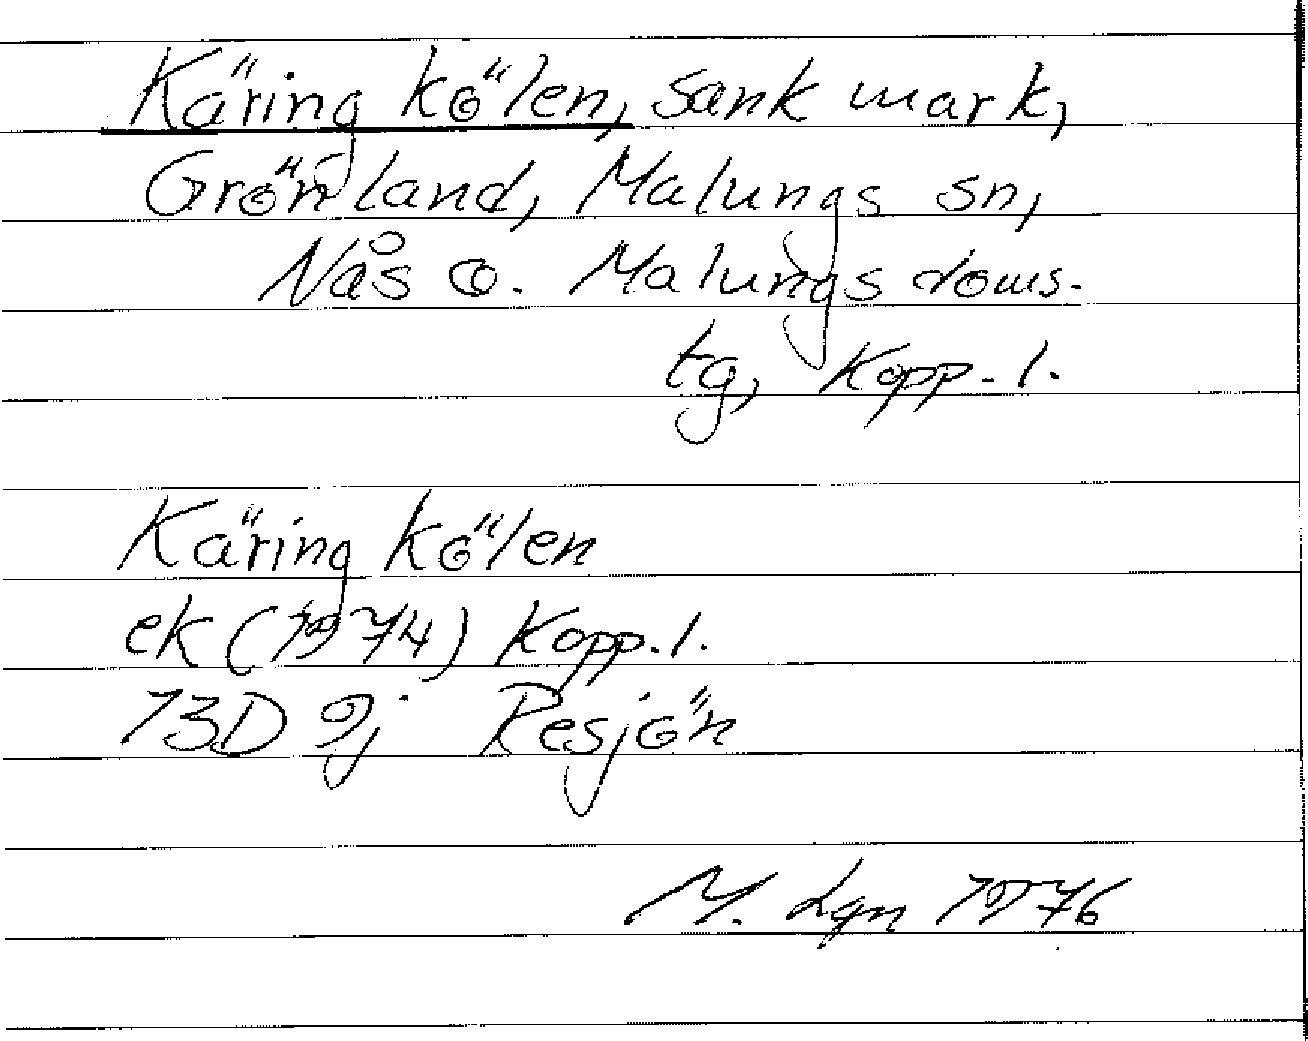 Käringkölen, sank mark,
Grönland, Malungs sn,
Nås o. Malungs doms.
tg, Kopp. l.
Käringkölen
ek (1974) Kopp. l.
13D 9j Resjön
M. Lgn 1976